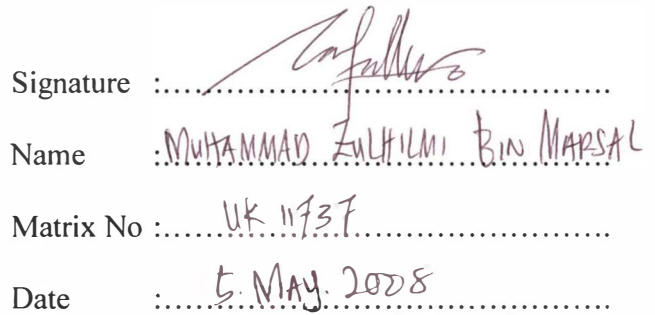 Signature :
Name : MUHAMMAD ZULHILMI BIN MARSAL
Matrix No : UK 11737
Date : 5. MAY. 2008